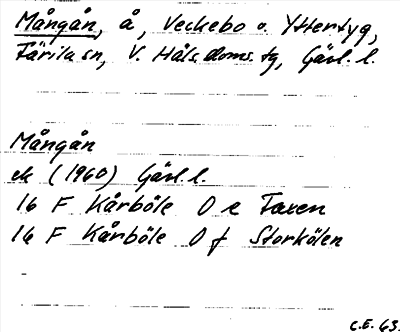 Mångån, å, Veckebo o. Yttertyg,
Färila sn, V. Häls. doms. tg, Gävl. l.
Mångån
ek (1960) Gävl. l.
16 F Kårböle O e Faxen
16 F Kårböle O f Storkölen
C.E. 63.